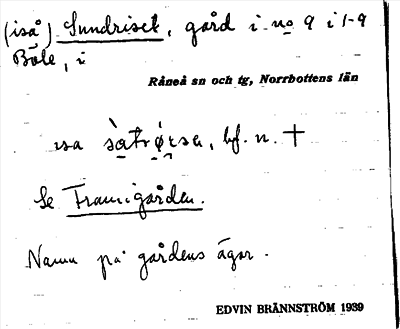 (iså) Sundriset, gård i no 9 i 1-9
Böle, i
Råneå sn och tg, Norrbottens län
bf. n. †
Se Framigården.
Namn på gårdens ägor.
EDVIN BRÄNNSTRÖM 1939